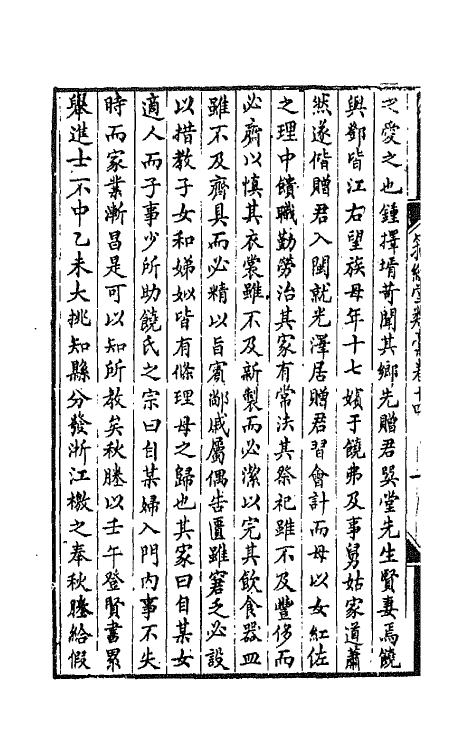 之愛之也鍾擇壻苛聞其鄉先贈君巽堂先生賢妻焉饒
與鄧皆江右望族母年十七嬪于饒弗及事舅姑家道蕭
然遂偕贈君入閩就光澤居贈君習會計而母以女紅佐
之理中饋職勤勞治其家有常法其祭祀雖不及豐侈而
必齊以慎其衣裳雖不及新製而必潔以完其飲食器皿
雖不及齊具而必精以旨賓鄰戚屬偶告匱雖窘乏必設
以措教子女和娣姒皆有條理母之歸也其家曰自某女
適人而子事少所助饒氏之宗曰自某婦入門內事不失
時而家業漸昌是可以知所教矣秋塍以壬午登賢書累
舉進士不中乙未大挑知縣分發浙江檄之奉秋塍給假
經堂類藁卷十四
一